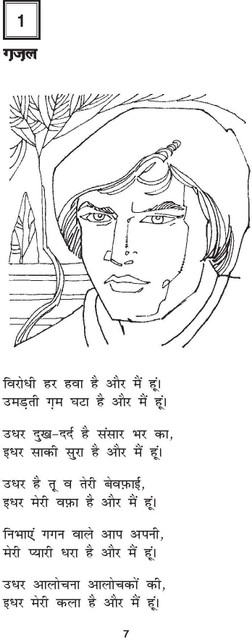 1
ग़ज़ल
विरोधी हर हवा है और मैं हूं।
उमड़ती ग़म घटा है और मैं हूं।
उधर दुख-दर्द है संसार भर का,
इधर साकी सुरा है और मैं हूं।
उधर है तू व तेरी बेवफ़ाई,
इधर मेरी वफ़ा है और मैं हूं।
निभाएं गगन वाले आप अपनी,
मेरी प्यारी धरा है और मैं हूं।
उधर आलोचना आलोचकों की,
इधर मेरी कला है और मैं हूं।
7